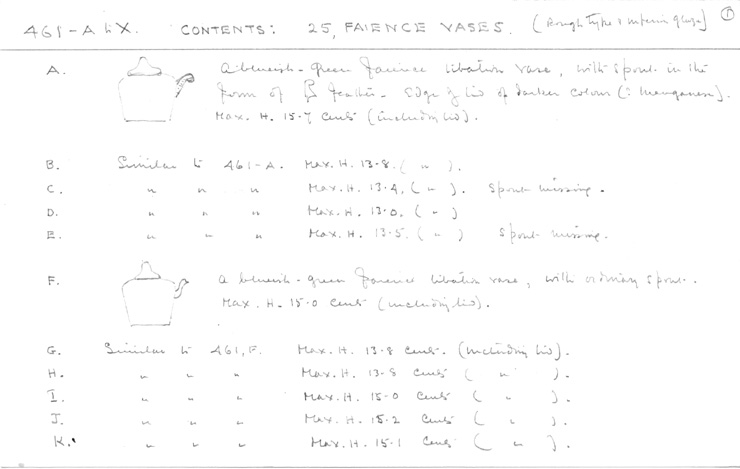 461-A to X. CONTENTS: 25, FAIENCE VASES. (Rough type & inferior glaze) 1
A. A blueish-green faience libation vase, with spout in the
form of feather - Edge of lid of darker colour (: manganese).
Max. H. 15.7 cents (including lid).
B. Similar to 461-A. Max. H. 13.8. ( " ).
C. " " " Max. H. 13.4, ( " ). Spout missing.
D. " " " Max. H. 13.0. ( " )
E. " " " Max. H. 13.5. ( " ) Spout missing.
F. A blueish-green faience libation vase, with ordinary spout.
Max. H. 15.0 cents (including lid).
G. Similar to 461, F. Max. H. 13.8 cents. (including lid).
H. " " " Max. H. 13.8 cents ( " ).
I. " " " Max. H. 15.0 cents ( " ).
J. " " " Max. H. 15.2 cents ( " ).
K. " " " Max. H. 15.1 cents ( " ).